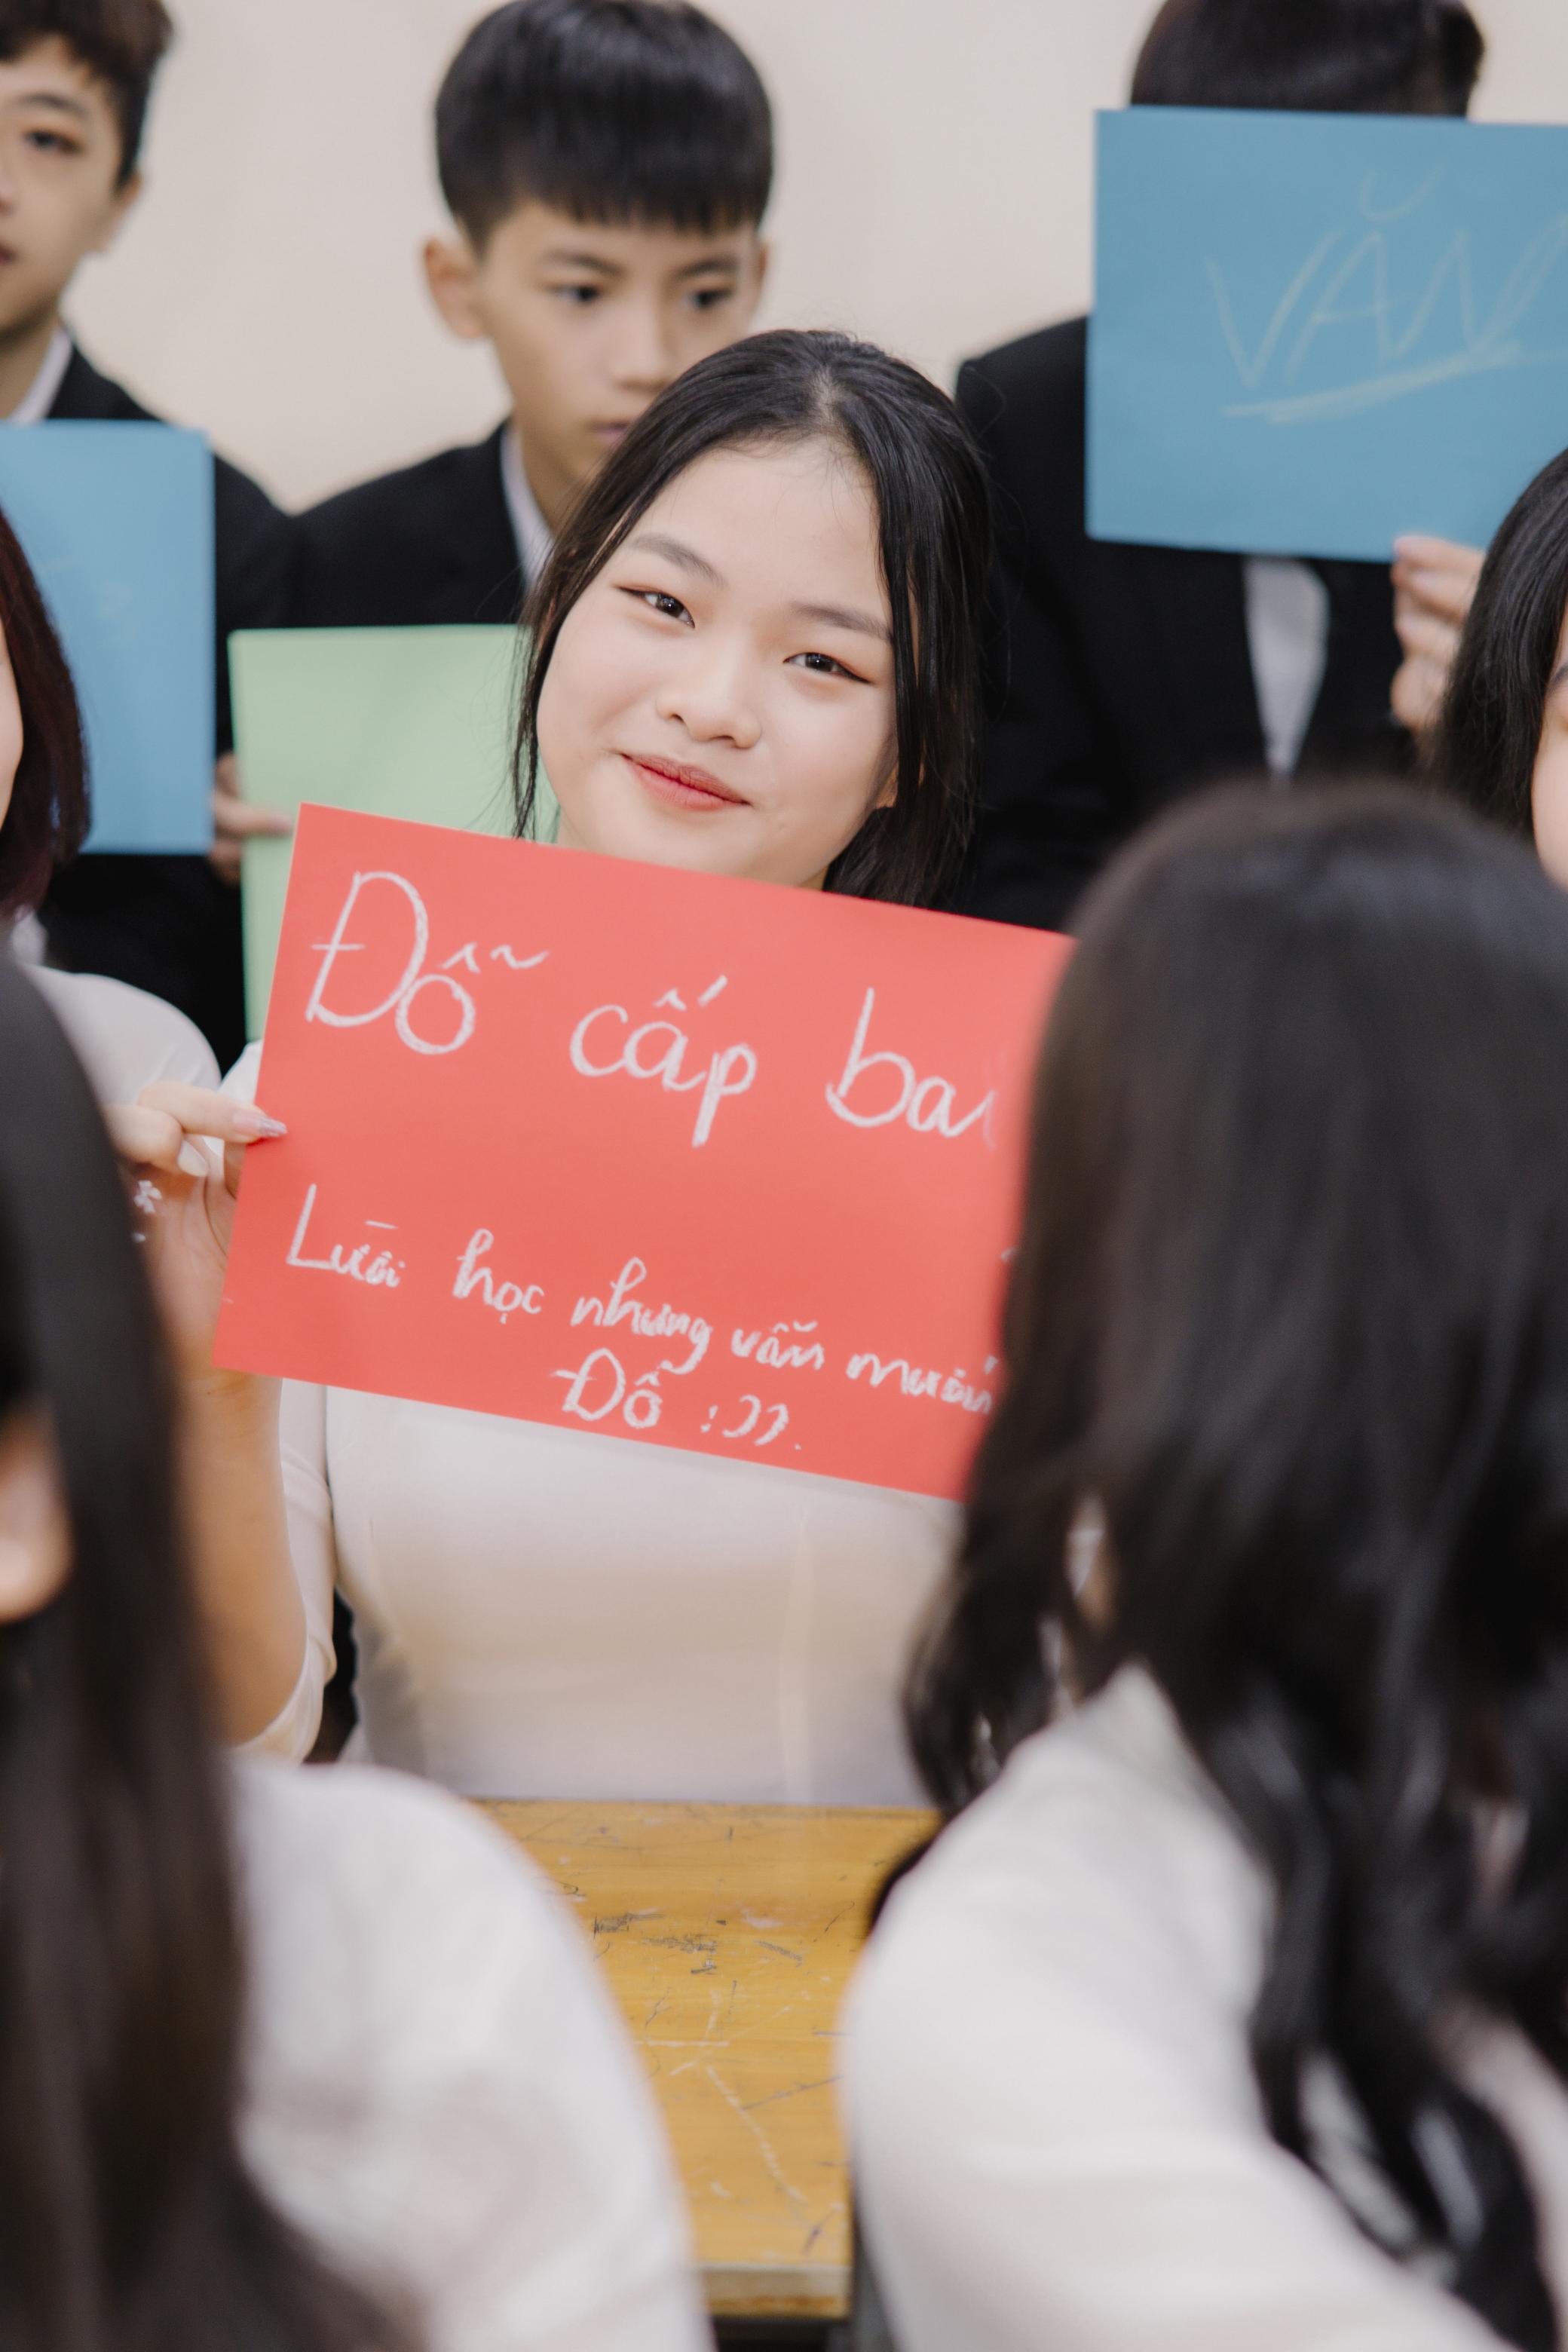 VĂN
Đỗ cấp ba
Lười học nhưng vẫn muốn
Đỗ :)).